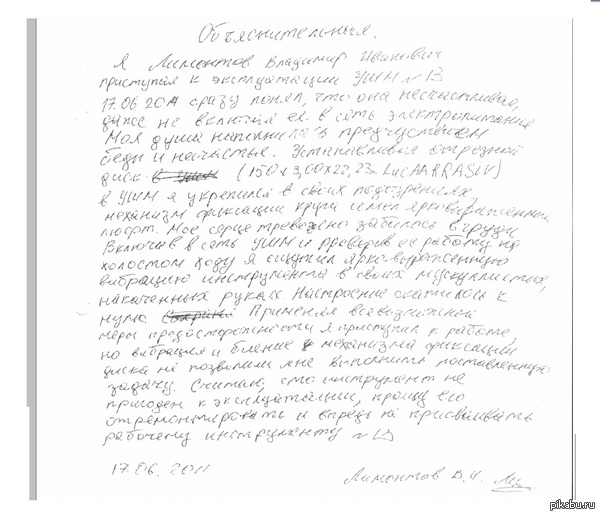 Объяснительная.
Я Лимонтов Владимир Иванович
приступая к эксплуатации УШМ №13
17.06.2011 сразу понял, что она несчастливая,
даже не включая её в сеть электропитания
Моя душа наполнилась предчувствием
беды и несчастья. Устанавливая отрезной
диск (150x3,00x22,23
в УШМ я укрепился в своих подозрениях,
механизм фиксации круга имел ярковыраженный
люфт. Мое сердце тревожно забилось в груди
Включив в сеть УШМ и проверив ее работу на
холостом ходу я ощутил ярковыраженную
вибрацию инструмента в своих мускулистых,
накаченных руках. Настроение скатилось к
нулю. Применяя всевозможные
меры предосторожности я приступил к работе
но вибрация и биение механизма фиксации
диска не позволили мне выполнить поставленную
задачу. Считаю, что инструмент не
пригоден к эксплуатации, прошу его
отремонтировать и впредь не присваивать
рабочему инструменту №13
17.06.2011 Лимонтов В.И.
pikabu.ru